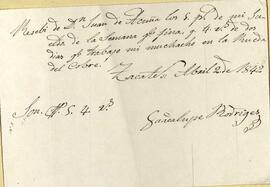 Resebi de Dn Juan de Acuña los 5 ps. de mi Su
eldo de la Semana qe. fina, y 4 rs. de dos
dias qe. trabajo mi muchacho en la Rueda
del Cobre.
Zacates. Abril 2 de 1842
Son Ps. 5. 4 rs.
Guadalupe Rodriges